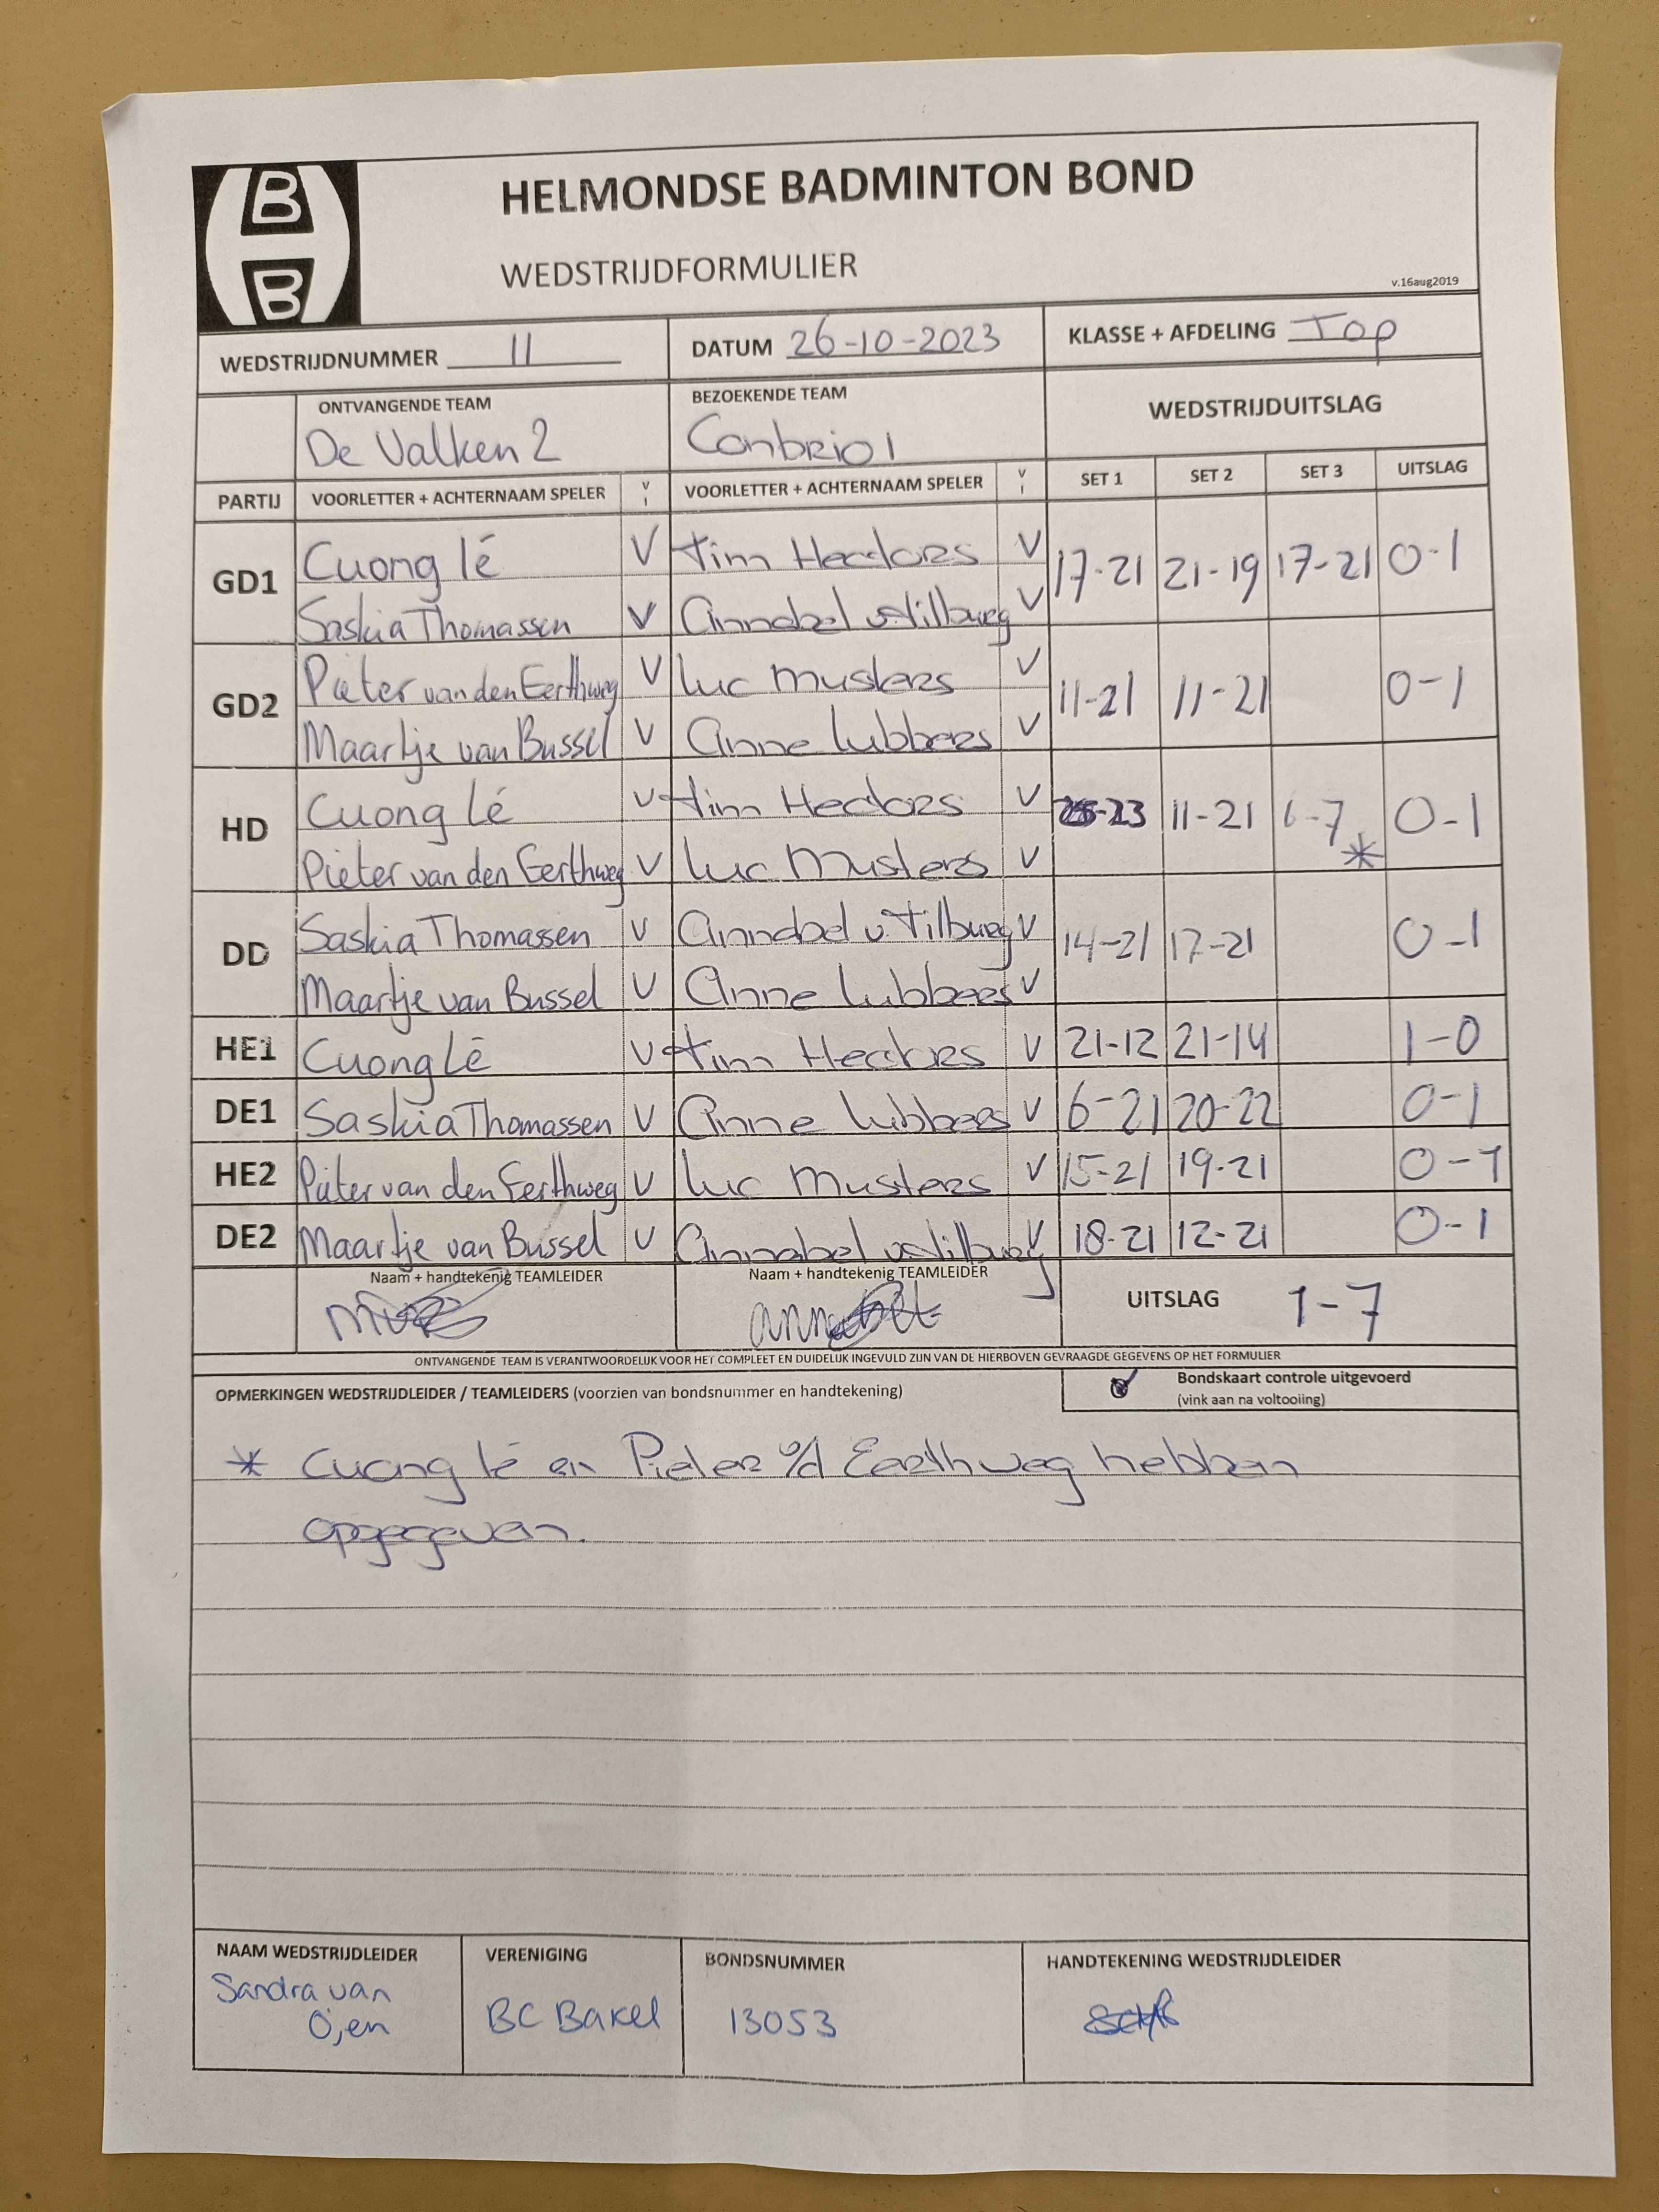 B
B
HELMONDSE BADMINTON BOND
WEDSTRIJDFORMULIER
v.16aug2019
WEDSTRIJDNUMMER 11 DATUM 26-10-2023 KLASSE + AFDELING Top
ONTVANGENDE TEAM BEZOEKENDE TEAM WEDSTRIJDUITSLAG
De Valken 2 Conbrio 1
PARTIJ VOORLETTER + ACHTERNAAM SPELER V I VOORLETTER + ACHTERNAAM SPELER V I SET 1 SET 2 SET 3 UITSLAG
GD1 Cuong lé V Tim Hectors V 17-21 21-19 17-21 0-1
Saskia Thomassen V Annabel v Tilburg V
GD2 Pieter van den Eerthweg V Luc Musters V 11-21 11-21 0-1
Maartje van Bussel V Anne Lubbers V
HD Cuong Lé V Tim Hectors V -23 11-21 6-7 * 0-1
Pieter van den Eerthweg V Luc Musters V
DD Saskia Thomassen V Annabel v Tilburg V 14-21 17-21 0-1
Maartje van Bussel V Anne Lubbers V
HE1 Cuong Lé V Tim Hectors V 21-12 21-14 1-0
DE1 Saskia Thomassen V Anne Lubbers V 6-21 20-22 0-1
HE2 Pieter van den Eerthweg V Luc Musters V 15-21 19-21 0-1
DE2 Maartje van Bussel V Annabel v Tilburg V 18-21 12-21 0-1
Naam + handtekenig TEAMLEIDER Naam + handtekenig TEAMLEIDER UITSLAG 1-7
ONTVANGENDE TEAM IS VERANTWOORDELIJK VOOR HET COMPLEET EN DUIDELIJK INGEVULD ZIJN VAN DE HIERBOVEN GEVRAAGDE GEGEVENS OP HET FORMULIER
OPMERKINGEN WEDSTRIJDLEIDER / TEAMLEIDERS (voorzien van bondsnummer en handtekening) Bondskaart controle uitgevoerd
(vink aan na voltooiing)
* Cuong lé en Pieter v/d Eerthweg hebben
opgegeven.
NAAM WEDSTRIJDLEIDER VERENIGING BONDSNUMMER HANDTEKENING WEDSTRIJDLEIDER
Sandra van
Oijen BC Bakel 13053